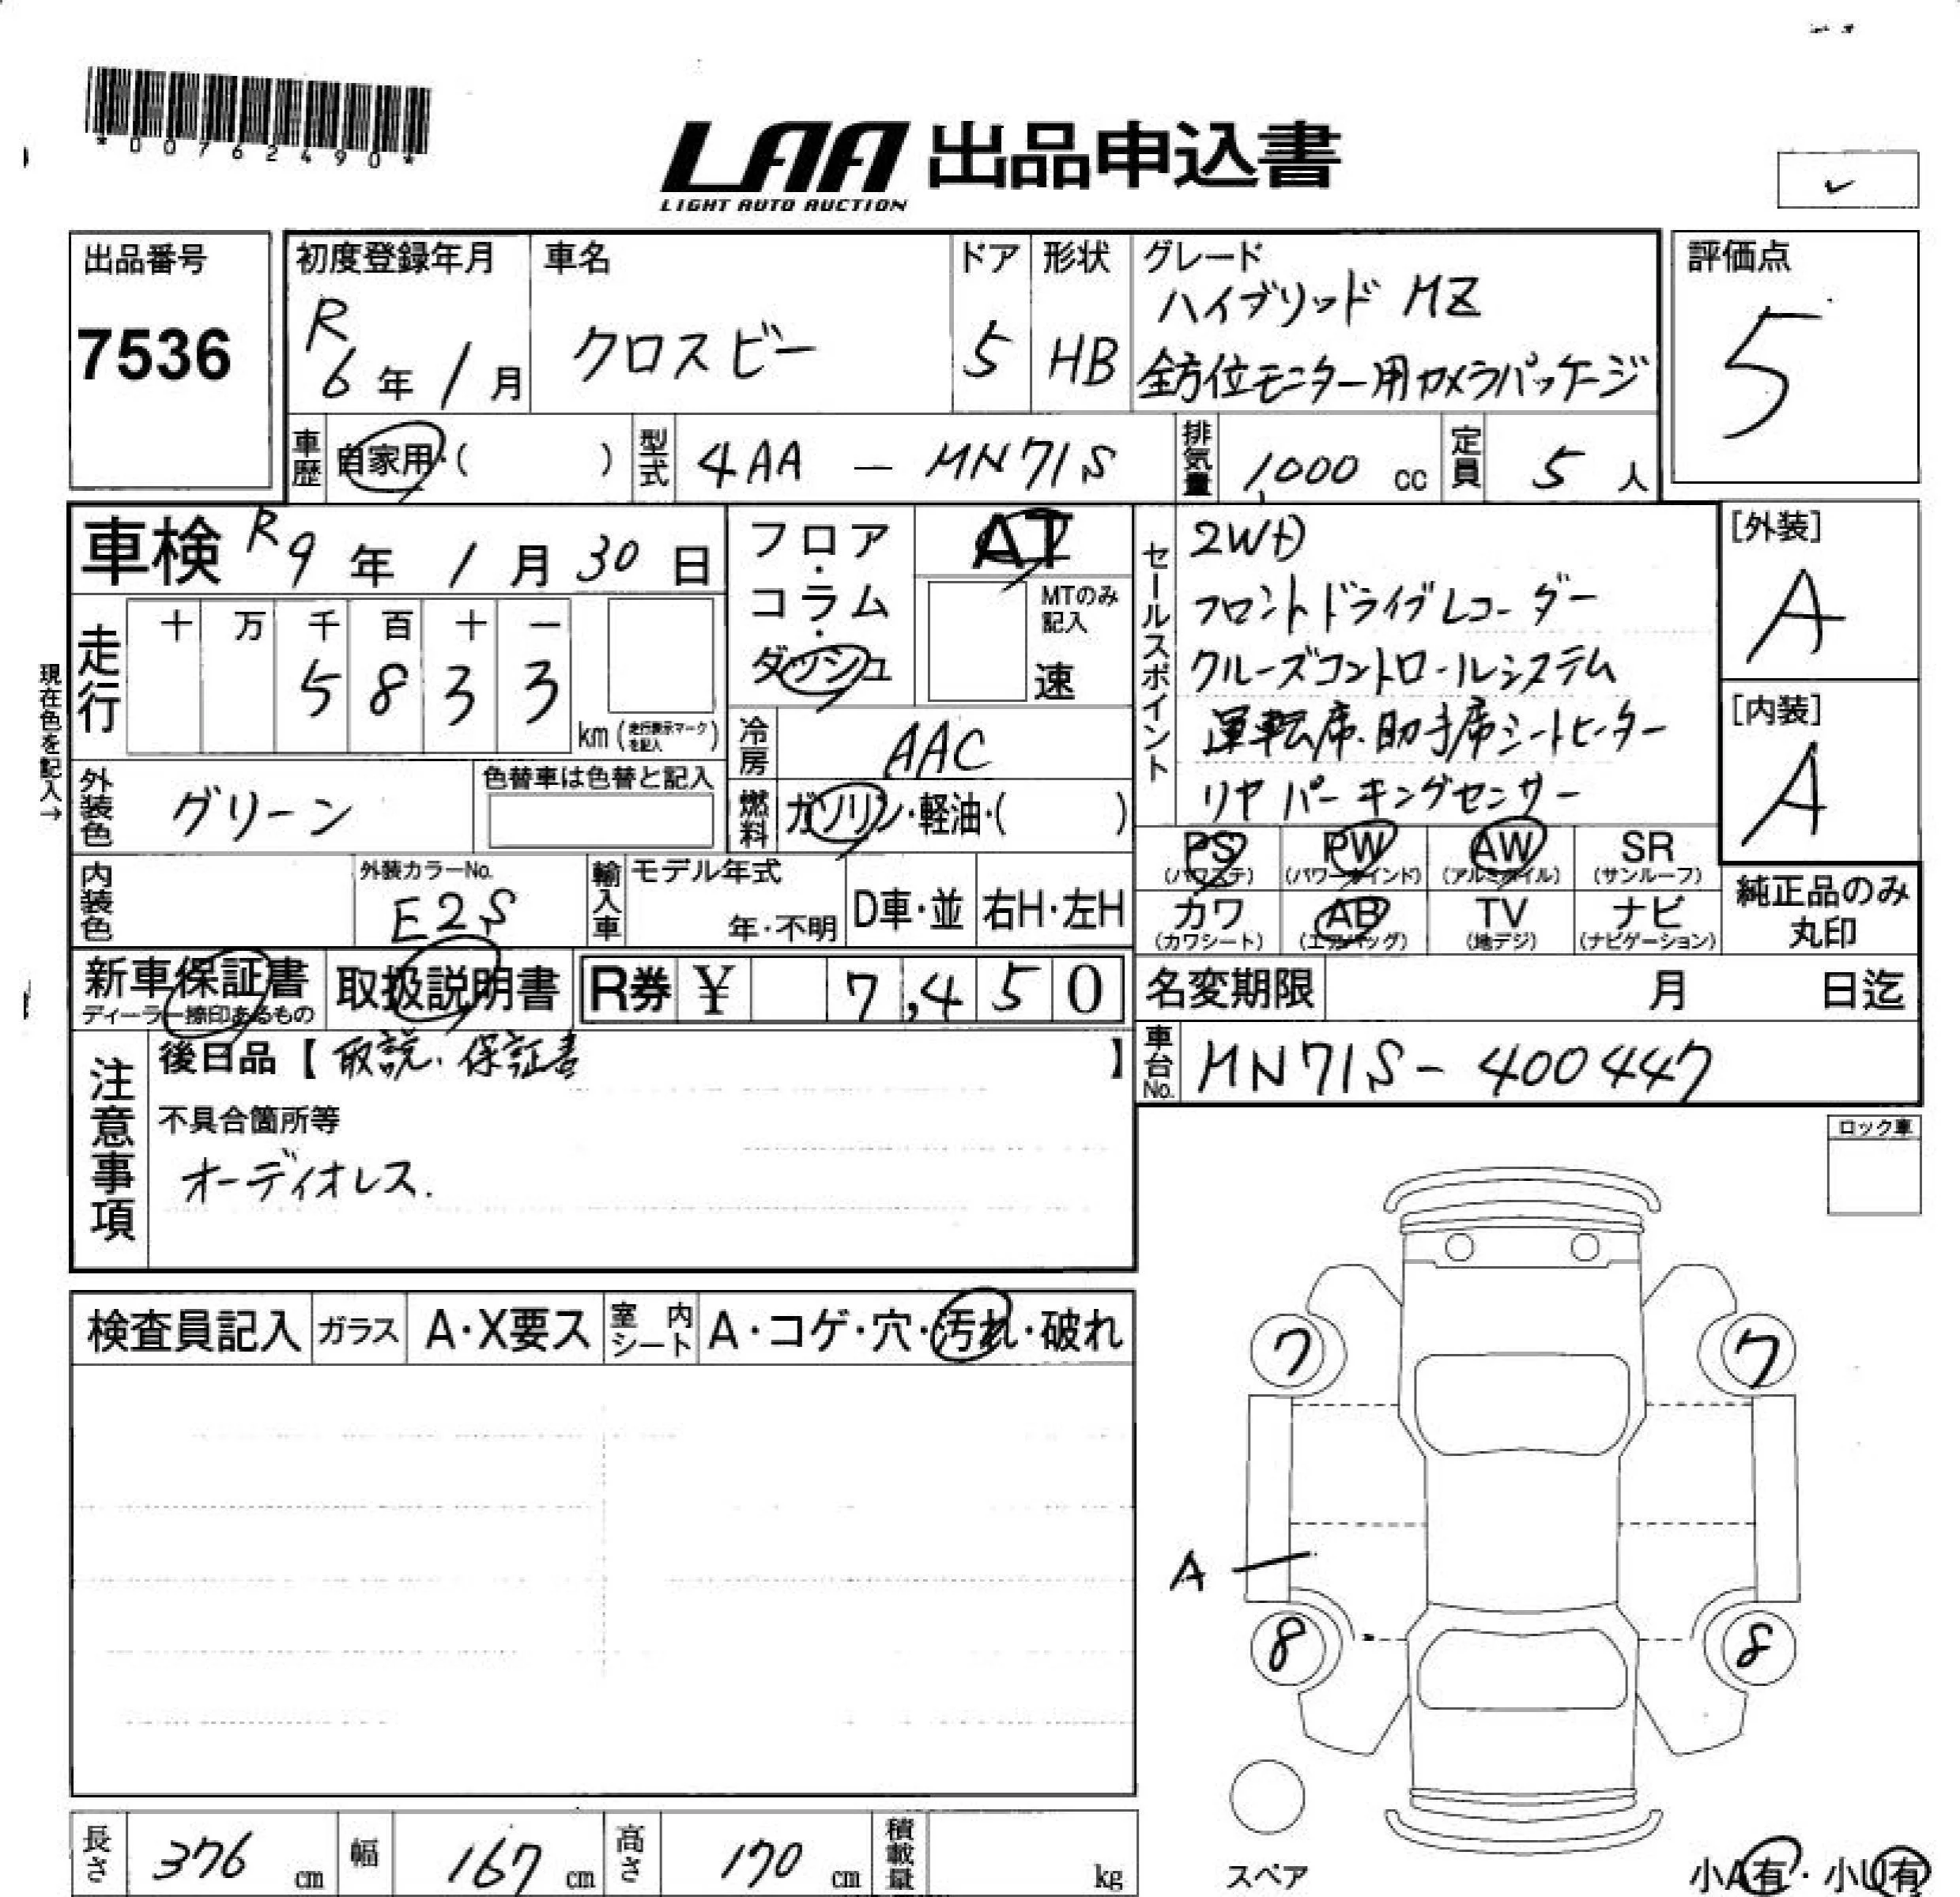 *00762490*
LAA 出品申込書
LIGHT AUTO AUCTION
出品番号
7536
初度登録年月
R
6年1月
車名
クロスビー
ドア
5
形状
HB
グレード
ハイブリッド MZ
全方位モニター用カメラパッケージ
評価点
5
車歴
自家用・( )
型式
4AA - MN71S
排気量
1,000 cc
定員
5人
車検 R9年1月30日
フロア・コラム・ダッシュ
AT
MTのみ記入
速
現在色を記入→
走行
十 万 千 百 十 一
5 8 3 3
km(走行表示マークを記入)
冷房
AAC
外装色
グリーン
色替車は色替と記入
燃料
ガソリン・軽油・( )
内装色
外装カラーNo.
E2S
輸入車
モデル年式
年・不明
D車・並
右H・左H
セールスポイント
2WD
フロントドライブレコーダー
クルーズコントロールシステム
運転席・助手席シートヒーター
リヤパーキングセンサー
[外装]
A
[内装]
A
PS PW AW SR
(パワステ) (パワーウインド) (アルミホイル) (サンルーフ)
カワ AB TV ナビ
(カワシート) (エアバッグ) (地デジ) (ナビゲーション)
純正品のみ
丸印
新車保証書
ディーラー捺印あるもの
取扱説明書
R券 ¥ 7,450
名変期限 月 日迄
車台No.
MN71S-400447
注意事項
後日品【取説・保証書】
不具合箇所等
オーディオレス.
ロック車
検査員記入
ガラス
A・X要ス
室内シート
A・コゲ・穴・汚れ・破れ
7
7
A
8
8
スペア
小A有・小U有
長さ 376 cm
幅 167 cm
高さ 170 cm
積載量 kg